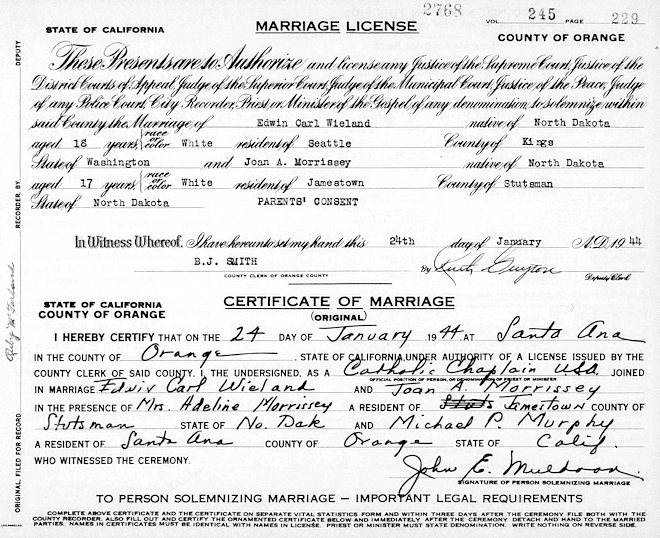 2768
STATE OF CALIFORNIA
MARRIAGE LICENSE
VOL 245 PAGE 229
COUNTY OF ORANGE
These Presents are to Authorize and license any Justice of the Supreme Court, Justice of the
District Courts of Appeal, Judge of the Superior Court, Judge of the Municipal Court, Justice of the Peace, Judge
of any Police Court, City Recorder, Priest or Minister of the Gospel of any denomination to solemnize within
said County the Marriage of Edwin Carl Wieland native of North Dakota
aged 18 years, race or color White resident of Seattle County of Kings
State of Washington and Joan A. Morrissey native of North Dakota
aged 17 years, race or color White resident of Jamestown County of Stutsman
State of North Dakota PARENTS' CONSENT
In Witness Whereof, I have hereunto set my hand this 24th day of January A.D. 1944
B.J. SMITH
COUNTY CLERK OF ORANGE COUNTY
By Ruth Guyton
Deputy Clerk
STATE OF CALIFORNIA
COUNTY OF ORANGE
CERTIFICATE OF MARRIAGE
(ORIGINAL)
I HEREBY CERTIFY THAT ON THE 24 DAY OF January 1944 AT Santa Ana
IN THE COUNTY OF Orange, STATE OF CALIFORNIA UNDER AUTHORITY OF A LICENSE ISSUED BY THE
COUNTY CLERK OF SAID COUNTY, I, THE UNDERSIGNED, AS A Catholic Chaplain USA JOINED
OFFICIAL POSITION OF PERSON, OR DENOMINATION OF PRIEST OR MINISTER
IN MARRIAGE Edwin Carl Wieland AND Joan A. Morrissey
IN THE PRESENCE OF Mrs. Adeline Morrissey A RESIDENT OF Stuts Jamestown COUNTY OF
Stutsman STATE OF No. Dak AND Michael P. Murphy
A RESIDENT OF Santa Ana COUNTY OF Orange STATE OF Calif.
WHO WITNESSED THE CEREMONY.
John E. Muldoon.
SIGNATURE OF PERSON SOLEMNIZING MARRIAGE
TO PERSON SOLEMNIZING MARRIAGE – IMPORTANT LEGAL REQUIREMENTS
COMPLETE ABOVE CERTIFICATE AND THE CERTIFICATE ON SEPARATE VITAL STATISTICS FORM AND WITHIN THREE DAYS AFTER THE CEREMONY FILE BOTH WITH THE
COUNTY RECORDER. ALSO FILL OUT AND CERTIFY THE ORNAMENTED CERTIFICATE BELOW AND IMMEDIATELY AFTER THE CEREMONY DETACH AND HAND TO THE MARRIED
PARTIES. NAMES IN CERTIFICATES MUST BE IDENTICAL WITH NAMES IN LICENSE. PRIEST OR MINISTER MUST STATE DENOMINATION. WRITE NOTHING ON REVERSE SIDE.
ORIGINAL, FILED FOR RECORD
RECORDER, BY
DEPUTY